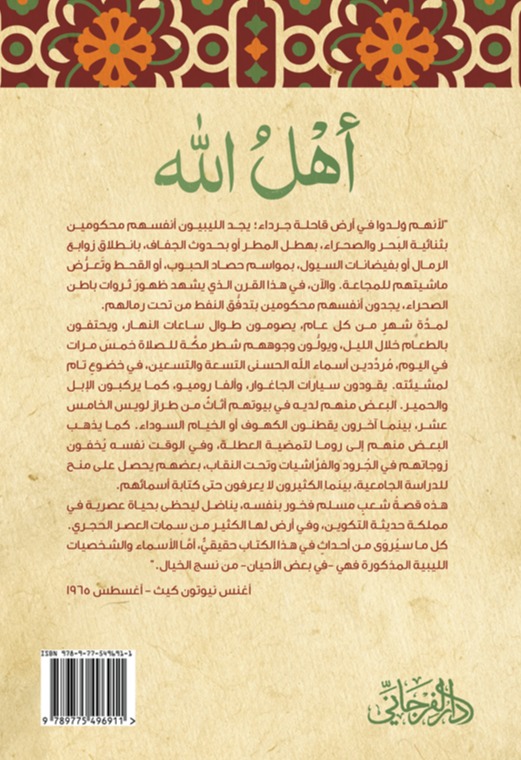 أَهْلُ الله
"لأنهم ولدوا في أرض قاحلة جرداء؛ يجد الليبيون أنفسهم محكومين
بثنائية البَحر والصحراء، بهطل المطر أو بحدوث الجفاف، بانطلاق زوابع
الرمال أو بفيضانات السيول، بمواسم حصاد الحبوب، أو القحط وتَعرُّض
ماشيتهم للمجاعة. والآن، في هذا القرن الذي يشهد ظهورَ ثروات باطن
الصحراء، يجدون أنفسهم محكومين بتدفُّق النفط من تحت رمالهم.
لمدّة شهرٍ من كل عام، يصومون طوال ساعات النهار، ويحتفون
بالطعام خلال الليل، ويولُّون وجوههم شطر مكّة للصلاة خمسَ مرات
في اليوم، مُردّدين أسماء الله الحسنى التسعة والتسعين، في خضوعٍ تام
لمشيئته. يقودون سيارات الجاغوار، وألفا روميو، كما يركبون الإبل
والحمير. البعض منهم لديه في بيوتهم أثاثٌ من طراز لويس الخامس
عشر، بينما آخرون يقطنون الكهوف أو الخيام السوداء. كما يذهب
البعض منهم إلى روما لتمضية العطلة، وفي الوقت نفسه يُخفون
زوجاتهم في الجُرود والفرّاشيات وتحت النقاب، بعضهم يحصل على منح
للدراسة الجامعية، بينما الكثيرون لا يعرفون حتى كتابة أسمائهم.
هذه قصةُ شعبٍ مسلم فخور بنفسه، يناضل ليحظى بحياة عصرية في
مملكة حديثة التكوين، وفي أرض لها الكثير من سمات العصر الحَجري.
كل ما سيُروَى من أحداثٍ في هذا الكتاب حقيقيٌّ، أمّا الأسماء والشخصيات
الليبية المذكورة فهي -في بعض الأحيان- من نسج الخيال."
أغنس نيوتون كيث - أغسطس ١٩٦٥
ISBN 978-9-77-549691-1
9 789775 496911 >
دار الفرجاني